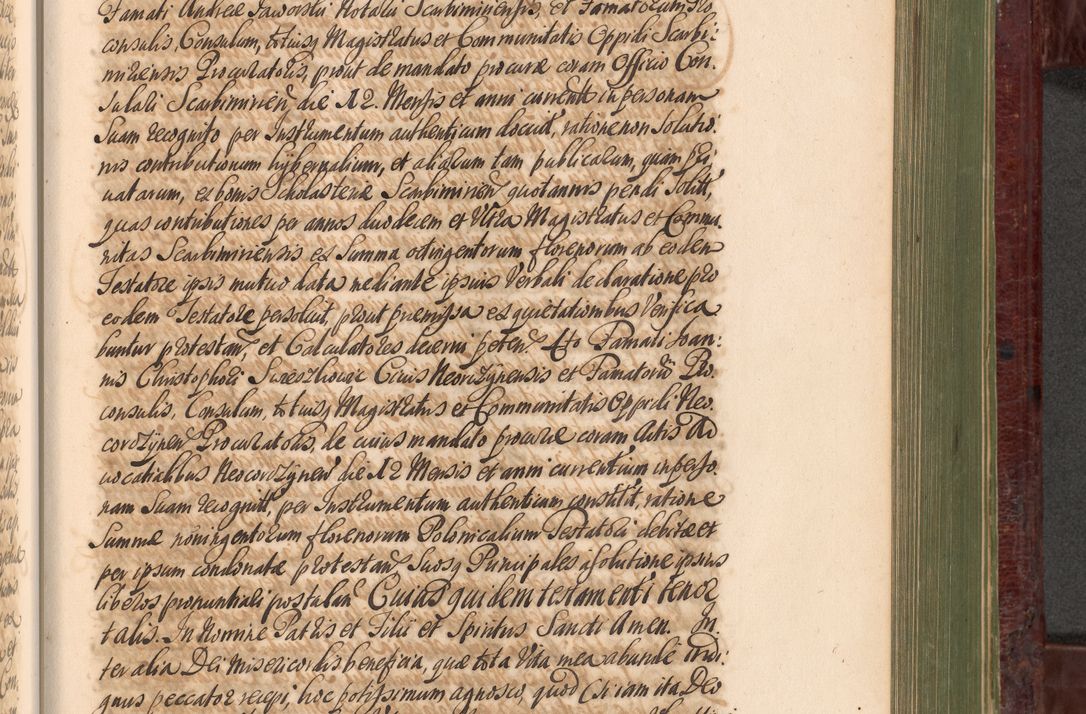 Famati Andreæ Jaworski Notarii Scarbimiriensis, et Famatorum Pro
consulis, Consulum, totiusq Magistratus et Communitatis Oppidi Scarbi:
miriensis Procuratoris, prout de mandato procuræ coram Officio Con.
sulali Scarbimirien die 12. Mensis et anni currentt in personam
Suam recognito per Instrumentum authenticum docuit, ratione non Solutio:
nis contributionum hybernalium, et aliarum tam publicarum, quam pri:
uatarum, ex bonis Scholasteriæ Scarbimirien quotannis pendi Solitt,
quas contributiones per annos duodecem et Vltra Magistratus et Commu
nitas Scarbimiriensis ex Summa octingentorum florenorum ab eodem
Testatore ipsis mutuo data mediante ipsius Verbali declaratione pro
eodem Testatore persoluit, prout præmissa ex quietationibus Verifica
buntur protestan, et Calculatores decerni peten. 4to Famati Joan:
nis Christophori Civis Neocorzÿnensis et Famatorũ Pro.
consulis, Consulum, totiusq Magistratus et Communitatis Oppidi Neo.
corczÿnen Procuratoris, de cuius mandato procuræ coram Actis Ad
uocatialibus Neocorczÿnen die 12 Mensis et anni currentium in perso.
nam Suam recognitt, per Instrumentum authenticum constitit, ratione
Summæ noningentorum florenorum Polonicalium Testatori debitæ et
per ipsum condonatæ protestan Suosq Principales a solutione ipsius
liberos pronuntiari postulan Cuius quidem testamenti tenor
talis. In Nomine Patris et Filii et Spiritus Sancti Amen. In.
ter alia Dei Misericordis beneficia, quæ tota Vita mea abunde indi:
gnus peccator recepi, hoc potissimum agnosco, quod Etiam ita Deo